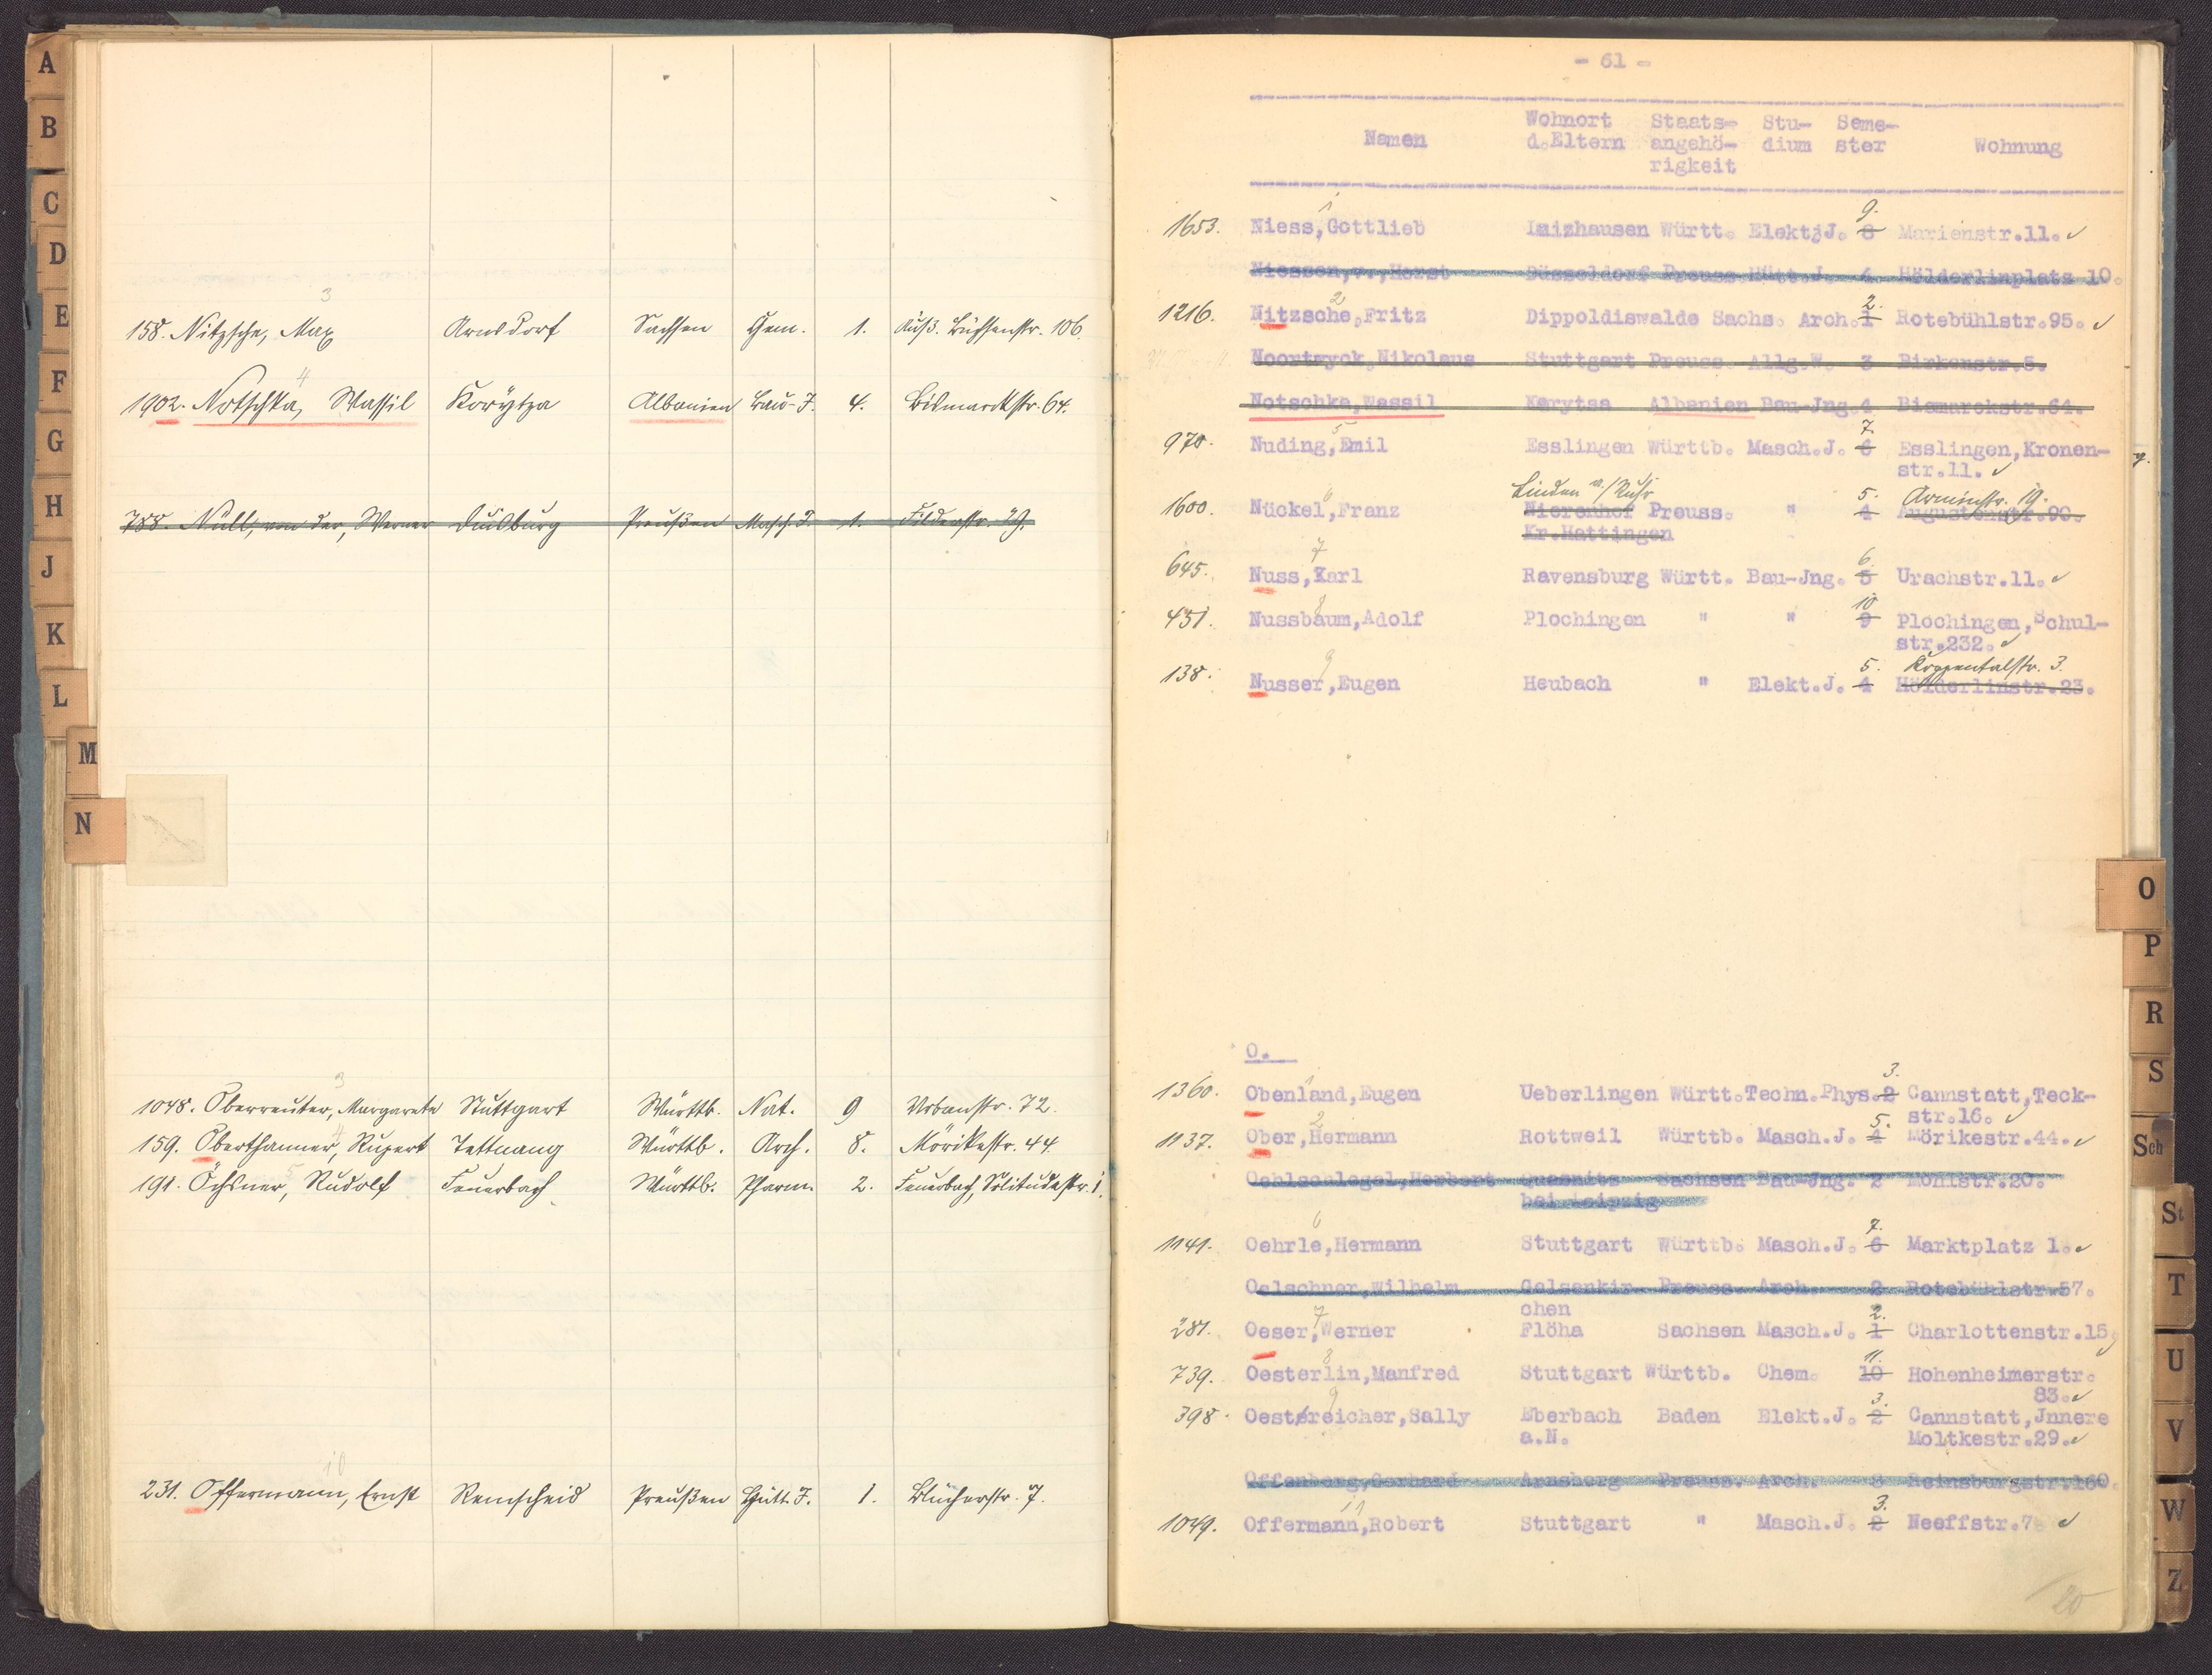 A
B
C
D
E
F
G
H
J
K
L
M
N
158. Nitzsche, Max Arnsdorf Sachsen Chem. 1. Auß. Büchsenstr. 106.
3
1902. Notschka, Wassil Korytza Albanien Bau-J. 4. Bismarckstr. 64.
4
788. Null, von der, Werner Duisburg Preußen Masch. J. 1.
1048. Oberreuter, Margarete Stuttgart Württb. Nat. 9 Urbanstr. 72.
3
159. Oberthanner, Rupert Tettnang Württb. Arch. 8. Mörikestr. 44.
4
191. Öchsner, Rudolf Feuerbach Württb. Pharm. 2. Feuerbach, Solitudestr. 1.
5
231. Offermann, Ernst Remscheid Preußen Hütt. J. 1. Blücherstr. 7.
10
- 61 -
Namen Wohnort d.Eltern Staats-angehö-rigkeit Stu-dium Seme-ster Wohnung
1653. Niess,Gottlieb Imizhausen Württ. Elekt.J. 8 9. Marienstr.11.
1
Niessen,v.,Horst Düsseldorf Preuss. Hütt.J. 4 Hölderlinplatz 10.
1216. Nitzsche,Fritz Dippoldiswalde Sachs. Arch. 1 2. Rotebühlstr.95.
2
Noortwyck,Nikolaus Stuttgart Preuss. Allg.W. 3 Birkenstr.5.
Notschka,Wassil Korytsa Albanien Bau-Jng. 4 Bismarckstr.64.
970. Nuding,Emil Esslingen Württb. Masch.J. 6 7. Esslingen,Kronen-
5
str.11.
Linden a./Ruhr 5. Arminstr. 19.
1600. Nückel,Franz Nierenhof Preuss. " 4 Augustenstr.90.
6
Kr.Hattingen
645. Nuss,Karl Ravensburg Württ. Bau-Jng. 5 6. Urachstr.11.
7
451. Nussbaum,Adolf Plochingen " " 9 10 Plochingen,Schul-
8
str.232.
5. Koppentalstr. 3.
138. Nusser,Eugen Heubach " Elekt.J. 4 Hölderlinstr.23.
9
O.
1360. Obenland,Eugen Ueberlingen Württ. Techn.Phys. 2 3. Cannstatt,Teck-
1
str.16.
1137. Ober,Hermann Rottweil Württb. Masch.J. 4 5. Mörikestr.44.
2
Oehlschlegel,Herbert Quesnitz Sachsen Bau-Jng. 2 Mohlstr.20.
bei Leipzig
1141. Oehrle,Hermann Stuttgart Württb. Masch.J. 6 7. Marktplatz 1.
6
Oelschner,Wilhelm Gelsenkir- Preuss. Arch. 2 Rotebühlstr.57.
chen
281. Oeser,Werner Flöha Sachsen Masch.J. 1 2. Charlottenstr.15
7
739. Oesterlin,Manfred Stuttgart Württb. Chem. 10 11. Hohenheimerstr.
8
83.
398. Oestreicher,Sally Eberbach Baden Elekt.J. 2 3. Cannstatt,Jnnere
9
a.N. Moltkestr.29.
Offenberg,Gerhard Arnsberg Preuss. Arch. 3 Reinsburgstr.160.
1049. Offermann,Robert Stuttgart " Masch.J. 2 3. Neeffstr.7
11
20
O
P
R
S
Sch
St
T
U
V
W
Z